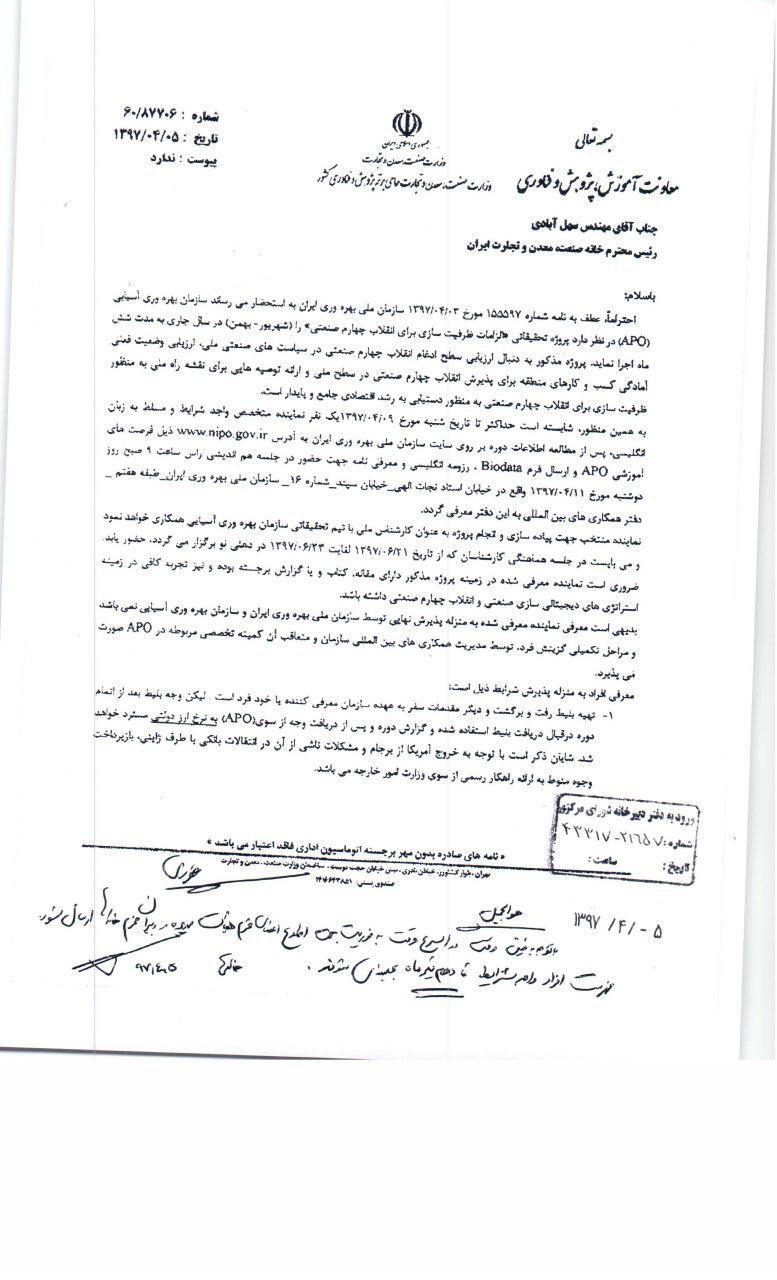 بسمه تعالی
معاونت آموزش، پژوهش و فناوری
جمهوری اسلامی ایران
وزارت صنعت، معدن و تجارت
وزارت صنعت، معدن و تجارت حامی برتر پژوهش و فناوری کشور
شماره : ۶۰/۸۷۷۰۶
تاریخ : ۱۳۹۷/۰۴/۰۵
پیوست : ندارد
جناب آقای مهندس سهل آبادی
رئیس محترم خانه صنعت، معدن و تجارت ایران
باسلام؛
احتراماً، عطف به نامه شماره ۱۵۵۵۹۷ مورخ ۱۳۹۷/۰۴/۰۳ سازمان ملی بهره وری ایران به استحضار می رساند سازمان بهره وری آسیایی
(APO) در نظر دارد پروژه تحقیقاتی «الزامات ظرفیت سازی برای انقلاب چهارم صنعتی» را (شهریور - بهمن) در سال جاری به مدت شش
ماه اجرا نماید. پروژه مذکور به دنبال ارزیابی سطح ادغام انقلاب چهارم صنعتی در سیاست های صنعتی ملی، ارزیابی وضعیت فعلی
آمادگی کسب و کارهای منطقه برای پذیرش انقلاب چهارم صنعتی در سطح ملی و ارائه توصیه هایی برای نقشه راه ملی به منظور
ظرفیت سازی برای انقلاب چهارم صنعتی به منظور دستیابی به رشد اقتصادی جامع و پایدار است.
به همین منظور، شایسته است حداکثر تا تاریخ شنبه مورخ ۱۳۹۷/۰۴/۰۹یک نفر نماینده متخصص واجد شرایط و مسلط به زبان
انگلیسی، پس از مطالعه اطلاعات دوره بر روی سایت سازمان ملی بهره وری ایران به آدرس www.nipo.gov.ir ذیل فرصت های
آموزشی APO و ارسال فرم Biodata ، رزومه انگلیسی و معرفی نامه جهت حضور در جلسه هم اندیشی راس ساعت ۹ صبح روز
دوشنبه مورخ ۱۳۹۷/۰۴/۱۱ واقع در خیابان استاد نجات الهی_خیابان سپند_شماره ۱۶_ سازمان ملی بهره وری ایران_طبقه هفتم _
دفتر همکاری های بین المللی به این دفتر معرفی گردد.
نماینده منتخب جهت پیاده سازی و انجام پروژه به عنوان کارشناس ملی با تیم تحقیقاتی سازمان بهره وری آسیایی همکاری خواهد نمود
و می بایست در جلسه هماهنگی کارشناسان که از تاریخ ۱۳۹۷/۰۶/۲۱ لغایت ۱۳۹۷/۰۶/۲۳ در دهلی نو برگزار می گردد، حضور یابد.
ضروری است نماینده معرفی شده در زمینه پروژه مذکور دارای مقاله، کتاب و یا گزارش برجسته بوده و نیز تجربه کافی در زمینه
استراتژی های دیجیتالی سازی صنعتی و انقلاب چهارم صنعتی داشته باشد.
بدیهی است معرفی نماینده معرفی شده به منزله پذیرش نهایی توسط سازمان ملی بهره وری ایران و سازمان بهره وری آسیایی نمی باشد
و مراحل تکمیلی گزینش فرد، توسط مدیریت همکاری های بین المللی سازمان و متعاقب آن کمیته تخصصی مربوطه در APO صورت
می پذیرد.
معرفی افراد به منزله پذیرش شرایط ذیل است:
۱- تهیه بلیط رفت و برگشت و دیگر مقدمات سفر به عهده سازمان معرفی کننده یا خود فرد است . لیکن وجه بلیط بعد از اتمام
دوره درقبال دریافت بلیط استفاده شده و گزارش دوره و پس از دریافت وجه از سوی(APO) به نرخ ارز دولتی مسترد خواهد
شد. شایان ذکر است با توجه به خروج آمریکا از برجام و مشکلات ناشی از آن در انتقالات بانکی با طرف ژاپنی، بازپرداخت
وجوه منوط به ارائه راهکار رسمی از سوی وزارت امور خارجه می باشد.
ورود به دفتر دبیرخانه شورای مرکزی
شماره: ۴۳۳۱۷-۲۱۶۵۷
تاریخ:
ساعت:
« نامه های صادره بدون مهر برجسته اتوماسیون اداری فاقد اعتبار می باشد »
تهران، بلوار کشاورز، خیابان نادری، نبش خیابان حجت دوست، ساختمان وزارت صنعت، معدن و تجارت
صندوق پستی:
۱۳۹۷/۴/-۵
افراد واجد شرایط تا دهم تیر ماه